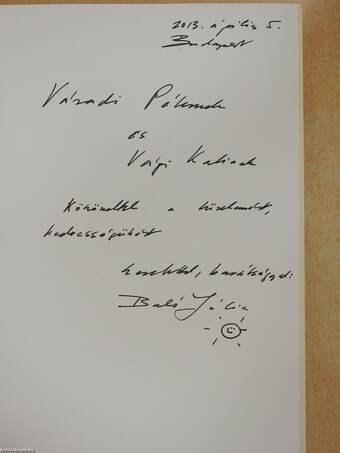 2013. április 5.
Budapest
Váradi Pálnak
és
Vági Katinak
Köszönettel a türelmükért,
kedvességükért
szeretettel, barátsággal:
Baló Júlia